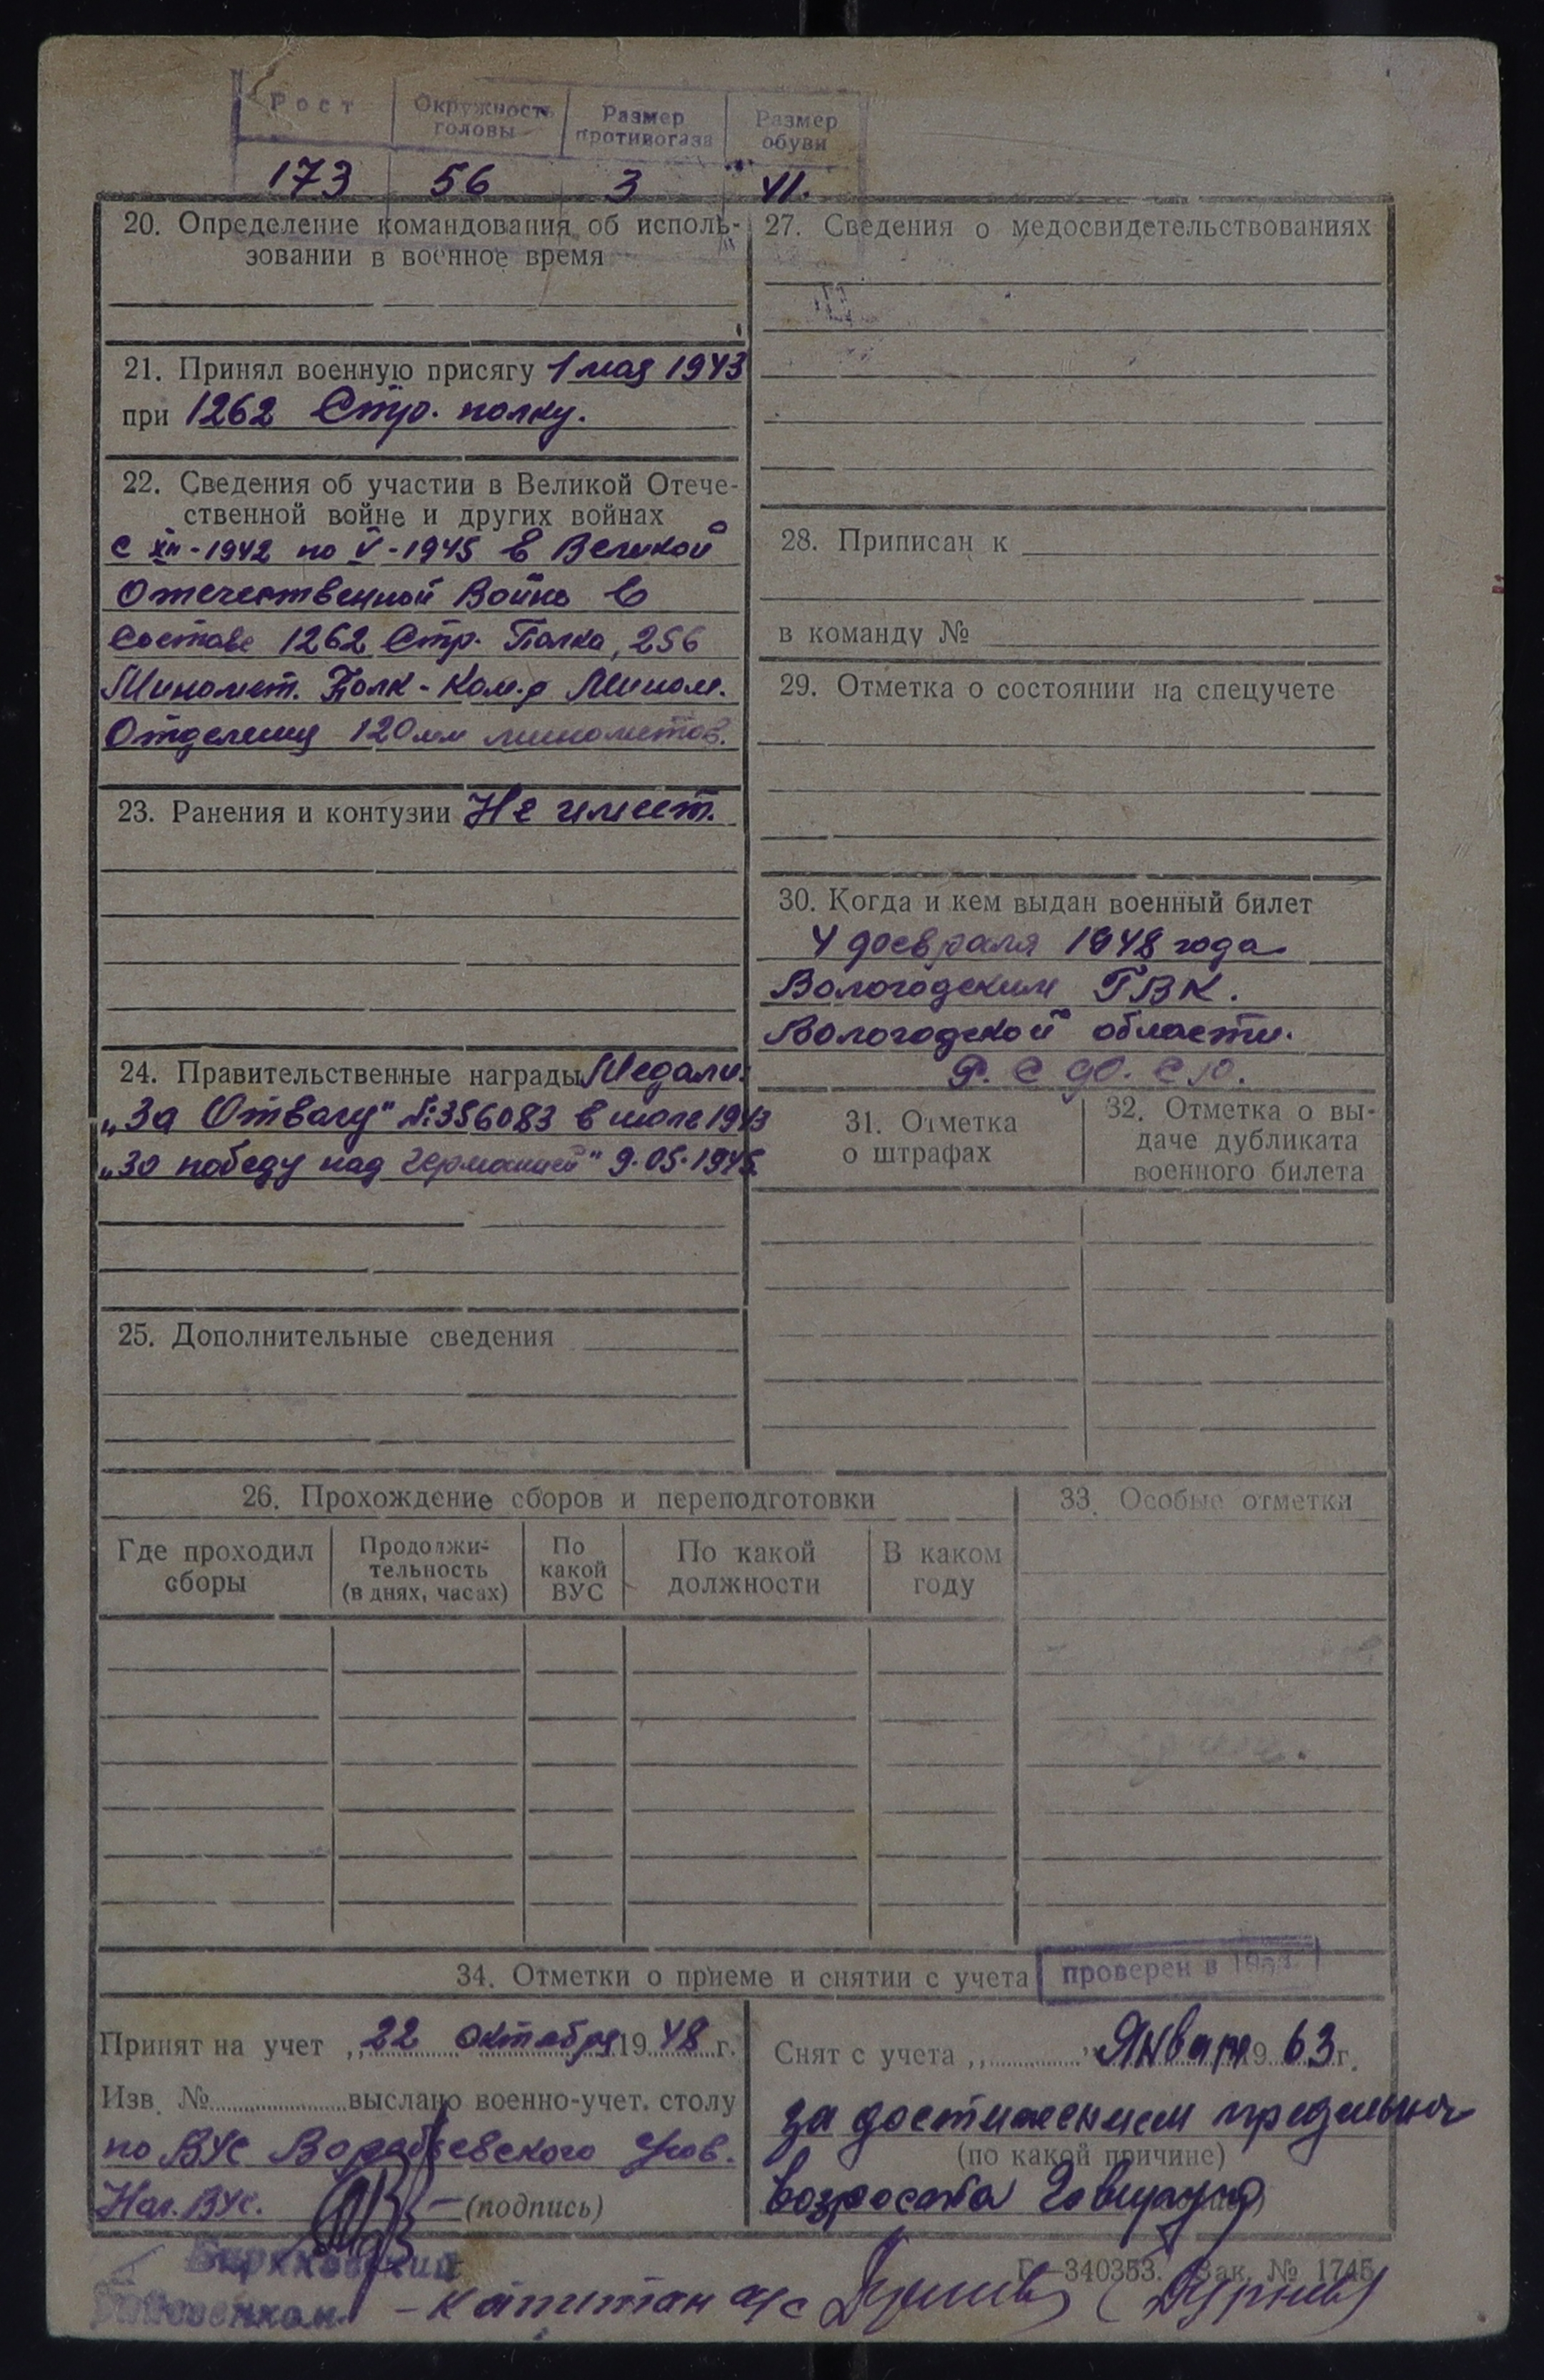 Рост Окружность головы Размер противогаза Размер обуви
173 56 3 41.
20. Определение командования об исполь-
зовании в военное время
21. Принял военную присягу 1 мая 1943
при 1262 Стр. полку.
22. Сведения об участии в Великой Отече-
ственной войне и других войнах
с XII-1942 по V-1945 в Великой
Отечественной Войне в
составе 1262 Стр. Полка, 256
Миномет. Полк - Ком.р Мином.
Отделения 120мм минометов.
23. Ранения и контузии Не имеет.
24. Правительственные награды Медали:
„За Отвагу" №356083 в июле 1943
„За победу над Германией" 9.05.1945
25. Дополнительные сведения
27. Сведения о медосвидетельствованиях
28. Приписан к
в команду №
29. Отметка о состоянии на спецучете
30. Когда и кем выдан военный билет
4 февраля 1948 года
Вологодским ГВК.
Вологодской области.
Р.С.Ф.С.Р.
31. Отметка
о штрафах
32. Отметка о вы-
даче дубликата
военного билета
26. Прохождение сборов и переподготовки
Где проходил
сборы
Продолжи-
тельность
(в днях, часах)
По
какой
ВУС
По какой
должности
В каком
году
33. Особые отметки
34. Отметки о приеме и снятии с учета
проверен в
Принят на учет „22 октября 1948 г.
Изв. № выслано военно-учет. столу
по ВУС Воробьевского
Нач. ВУС. (подпись)
Снят с учета „ " Января 1963 г.
за достижением предельного
(по какой причине)
возраста
Биряковский
Райвоенком - капитан а/с
Г—340353. Зак. № 1745